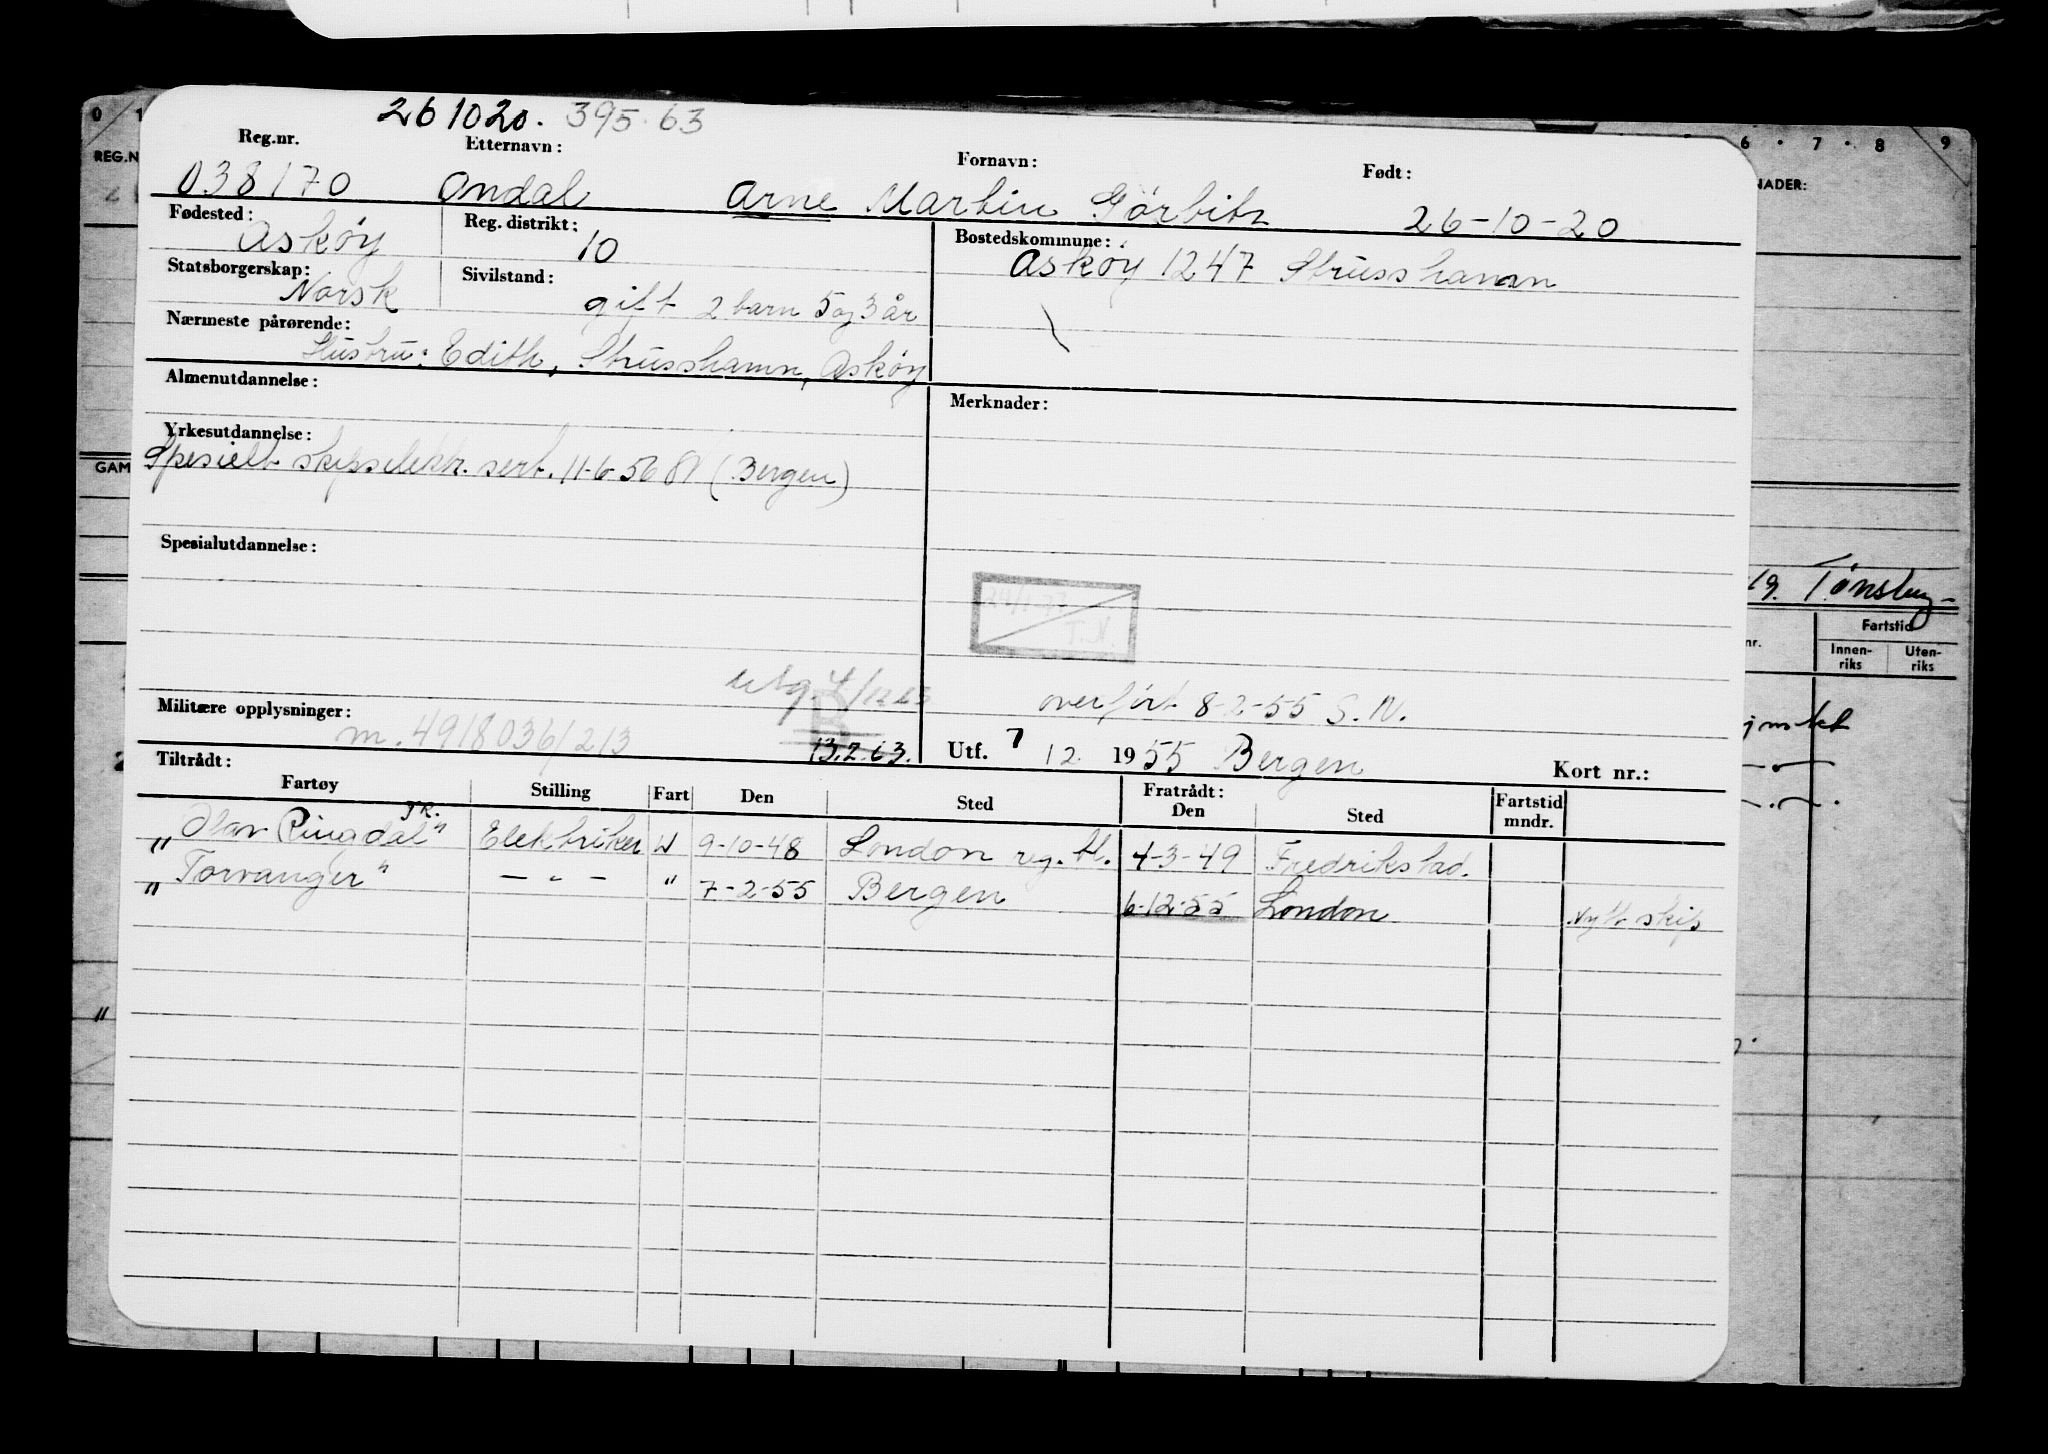 261020. 395.63
Reg.nr. Etternavn: Fornavn: Født:
038170 Andal Arne Martin Görbitz 26-10-20
Fødested: Askøy Reg. distrikt: 10 Bostedskommune: Askøy 1247 Strusshamn
Statsborgerskap: Norsk Sivilstand: gift 2 barn 5 og 3 år
Nærmeste pårørende: Hustru: Edith, Strusshamn, Askøy
Almenutdannelse: Merknader:
Yrkesutdannelse:
Spesielt skipselektr. sert. 11-6-56 (Bergen)
Spesialutdannelse:
T.N.
utg. 4/12 63
overført 8-2-55 S.N.
Militære opplysninger: m. 4918036/213
13.2.63. Utf. 7 12. 1955 Bergen Kort nr.:
Tiltrådt: Fratrådt:
Fartøy Stilling Fart Den Sted Den Sted Fartstid mndr.
"Olav Ringdal JR." Elektriker U 9-10-48 London reg. bl. 4-3-49 Fredrikstad.
"Torvanger" — " — " 7-2-55 Bergen 6-12-55 London Nytt skip
0 1
REG.N
GAM
6 . 7 . 8 9
NADER:
19. Tønsberg-
nr. Fartstid
Innen-riks Uten-riks
"